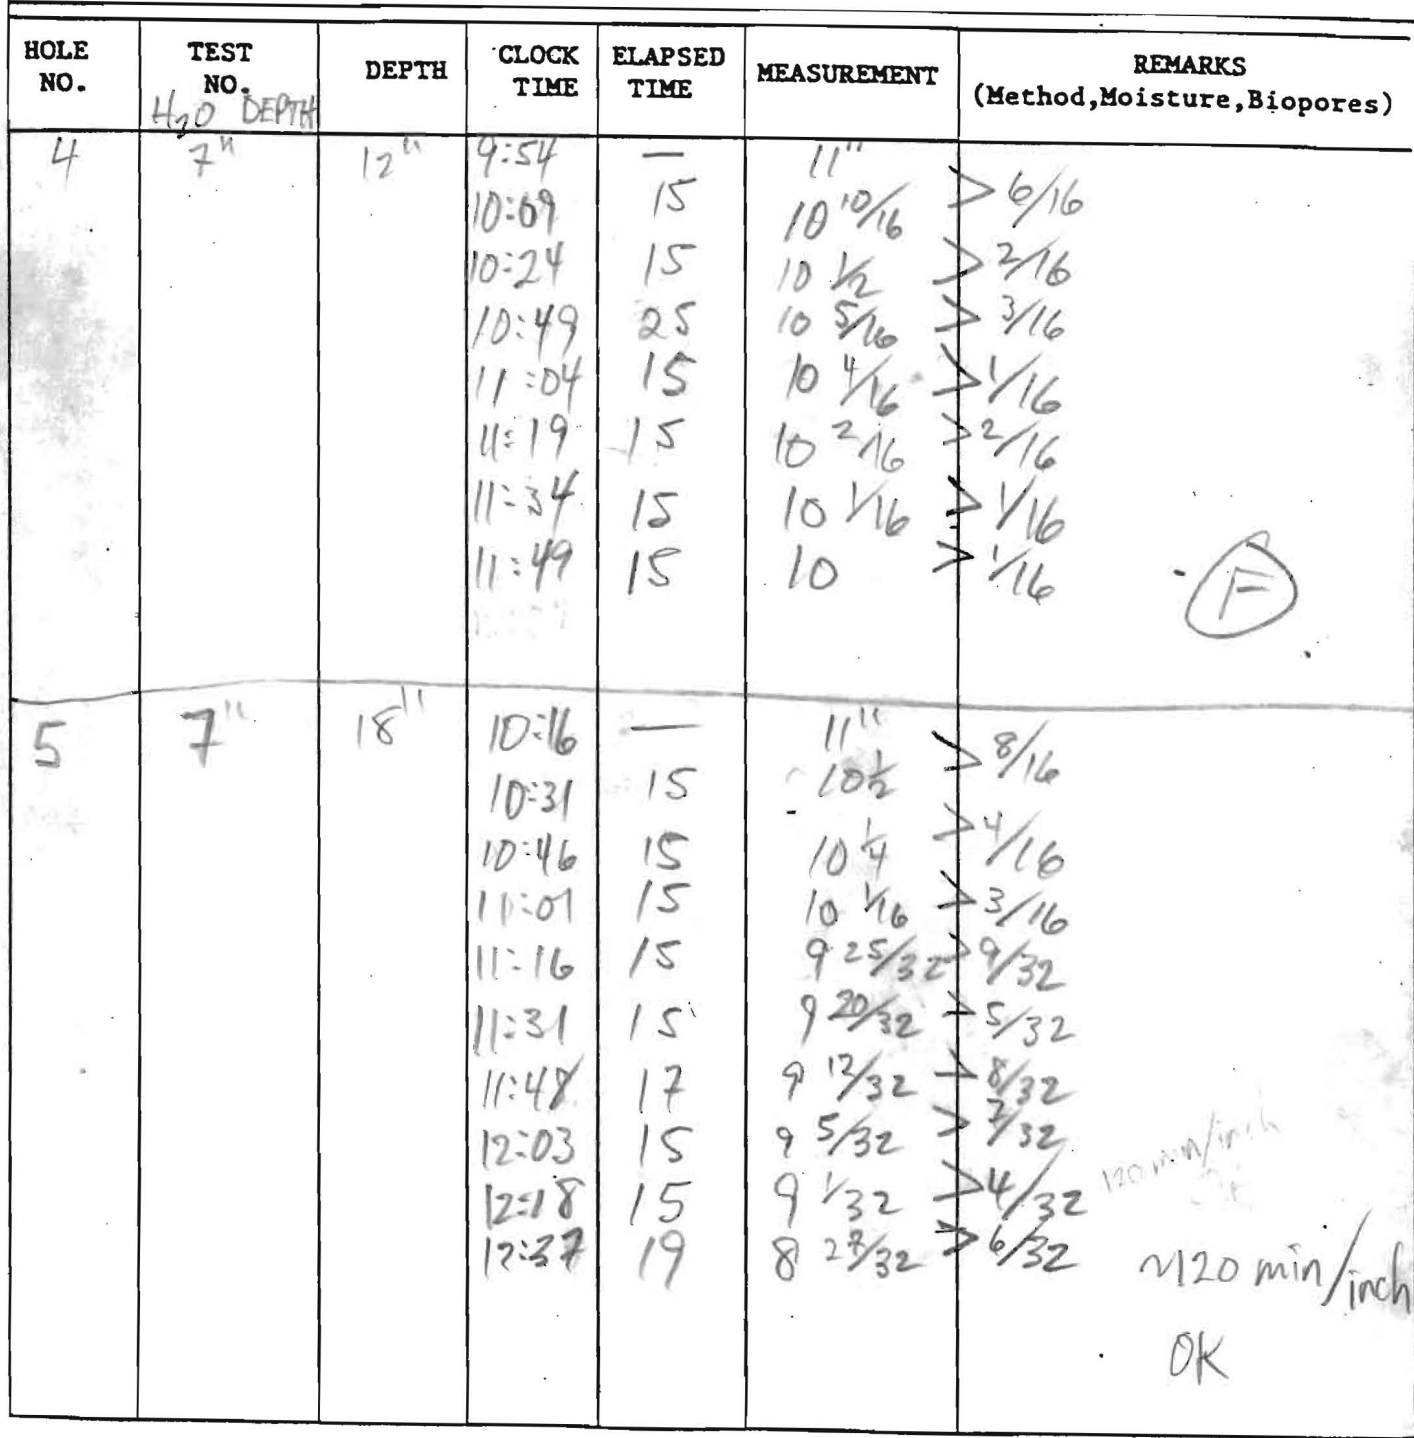 HOLE NO. TEST NO. DEPTH CLOCK TIME ELAPSED TIME MEASUREMENT REMARKS (Method,Moisture,Biopores)
H2O DEPTH
4 7" 12" 9:54 — 11"
10:09 15 10 10/16 > 6/16
10:24 15 10 1/2 > 2/16
10:49 25 10 5/16 > 3/16
11:04 15 10 4/16 > 1/16
11:19 15 10 2/16 > 2/16
11:34 15 10 1/16 > 1/16
11:49 15 10 > 1/16
F
5 7" 18" 10:16 — 11"
10:31 15 10 1/2 > 8/16
10:46 15 10 1/4 > 4/16
11:01 15 10 1/16 > 3/16
11:16 15 9 25/32 > 9/32
11:31 15 9 20/32 > 5/32
11:48 17 9 12/32 > 8/32
12:03 15 9 5/32 > 7/32
120 min/inch
12:18 15 9 1/32 > 4/32
12:37 19 8 27/32 > 6/32
~120 min/inch
OK